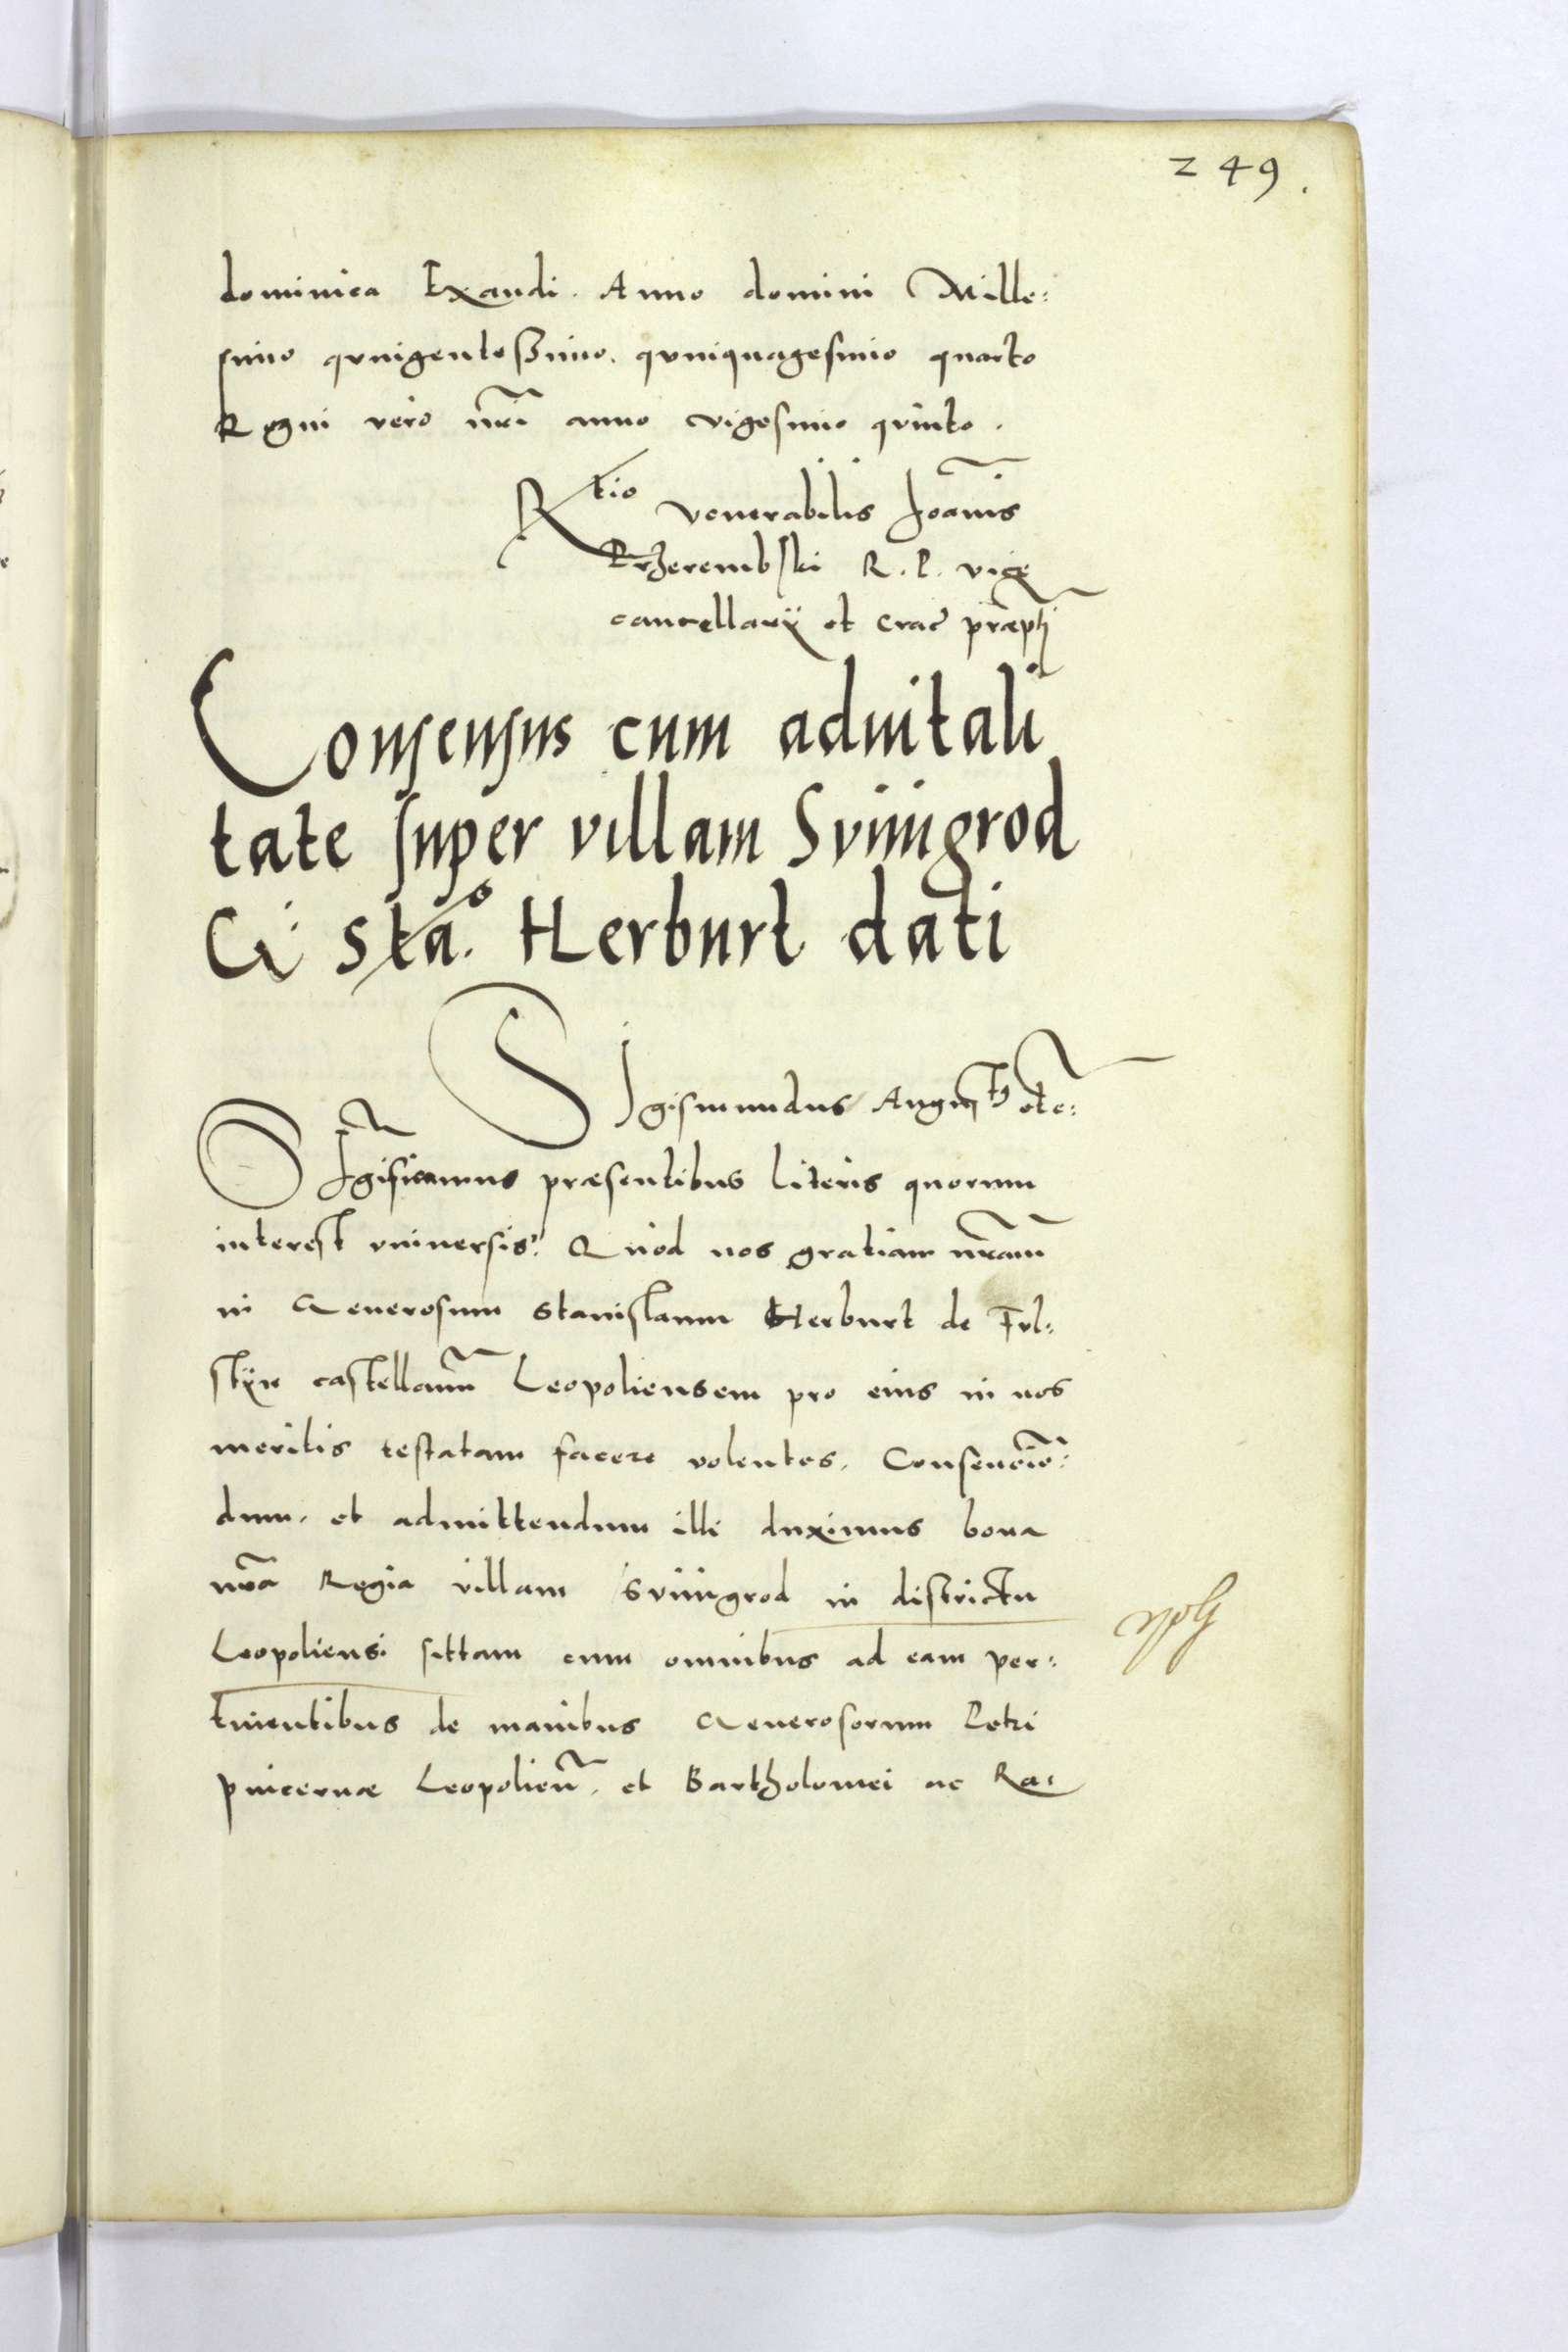 249.
dominica Exaudi. Anno domini Mille:
simo quingentessimo. quinquagesimo quarto
Regni vero nrĩ anno vigesimo quinto.
Rtio venerabilis Joãnis
Przerembski R. P. vice
cancellarÿ et Crac̃ præpti
Consensus cum aduitali
tate super villam Sviiugrod
G. Sta.o Herburt dati
Sigismundus August9 etc:
Sigñificamus præsentibus literis quorum
interest vniuersis: Quod nos gratiam nr̃am
in Generosum Stanislaum Herburt de Ful:
stÿn castellanũm Leopoliensem pro eius in nos
meritis testatam facere volentes. Consencien̄:
dum. et admittendum illi duximus bona
nr̃a Regia villam Sviiugrod in districtu
Leopoliensi sittam cum omnibus ad eam per:
tinentibus de manibus Generosorum Petri
pincernæ Leopolien̄. et Bartholomei ac Ra: